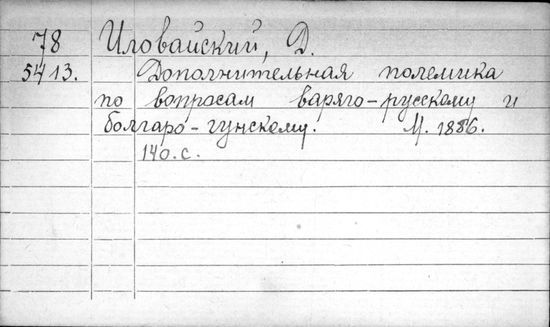 78 Иловайский, Д.
5413. Дополнительная полемика
по вопросам варяго-русскому и
болгаро-гунскому. М. 1886.
140.с.